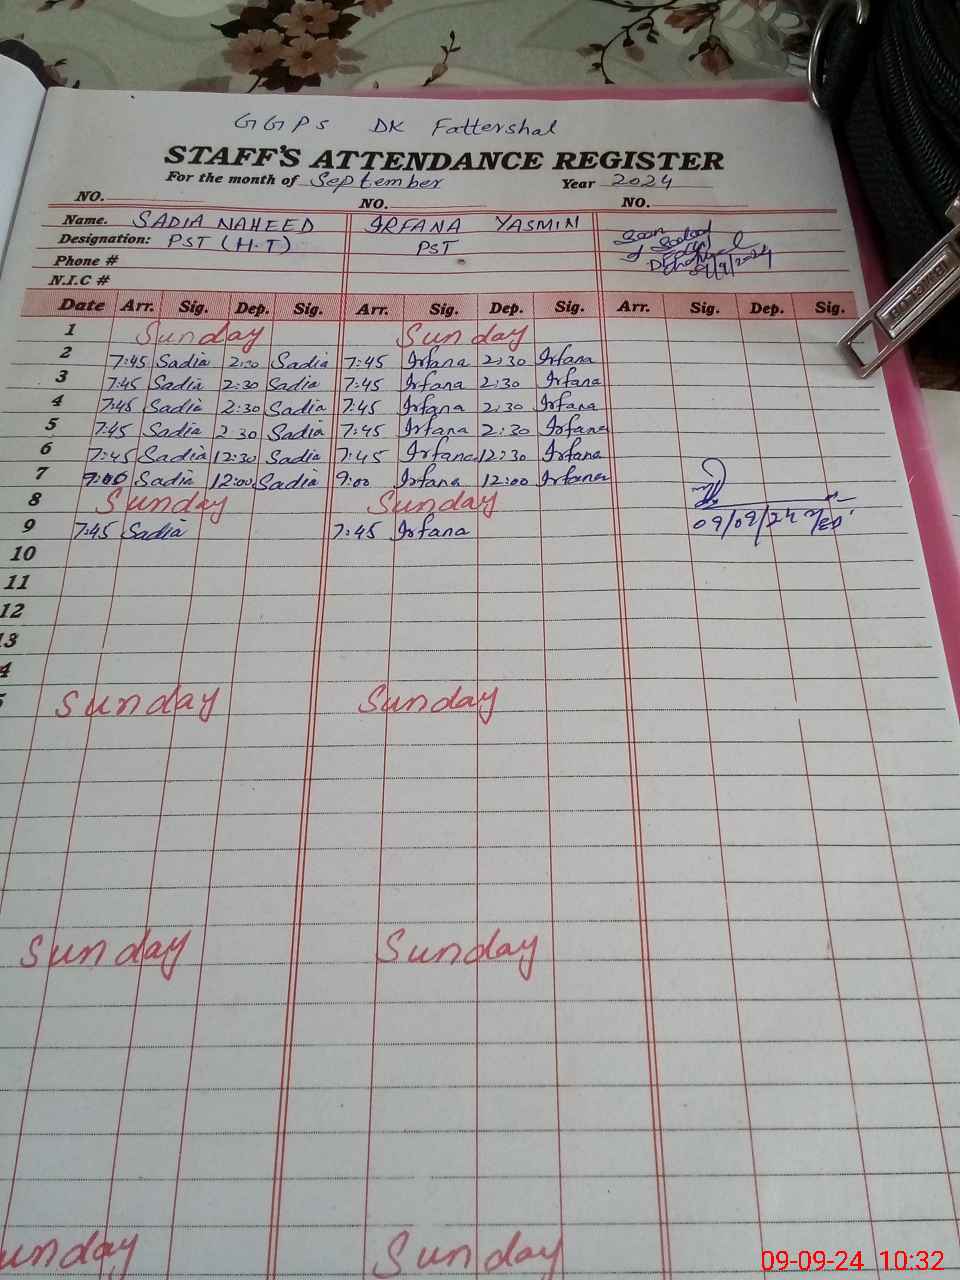 GGPS DK Fattershal
STAFF'S ATTENDANCE REGISTER
For the month of September Year 2024
NO. NO. NO.
Name. SADIA NAHEED IRFANA YASMIN
Designation: PST (H.T) PST
Phone #
N.I.C #
Date Arr. Sig. Dep. Sig. Arr. Sig. Dep. Sig. Arr. Sig. Dep. Sig.
1 Sunday Sunday
2 7:45 Sadia 2:30 Sadia 7:45 Irfana 2:30 Irfana
3 7:45 Sadia 2:30 Sadia 7:45 Irfana 2:30 Irfana
4 7:45 Sadia 2:30 Sadia 7:45 Irfana 2:30 Irfana
5 7:45 Sadia 2:30 Sadia 7:45 Irfana 2:30 Irfana
6 7:45 Sadia 12:30 Sadia 7:45 Irfana 12:30 Irfana
7 9:00 Sadia 12:00 Sadia 9:00 Irfana 12:00 Irfana
8 Sunday Sunday
9 7:45 Sadia 7:45 Irfana 09/09/24
10
11
12
13
4
5 Sunday Sunday
Sunday Sunday
unday Sunday
09-09-24 10:32